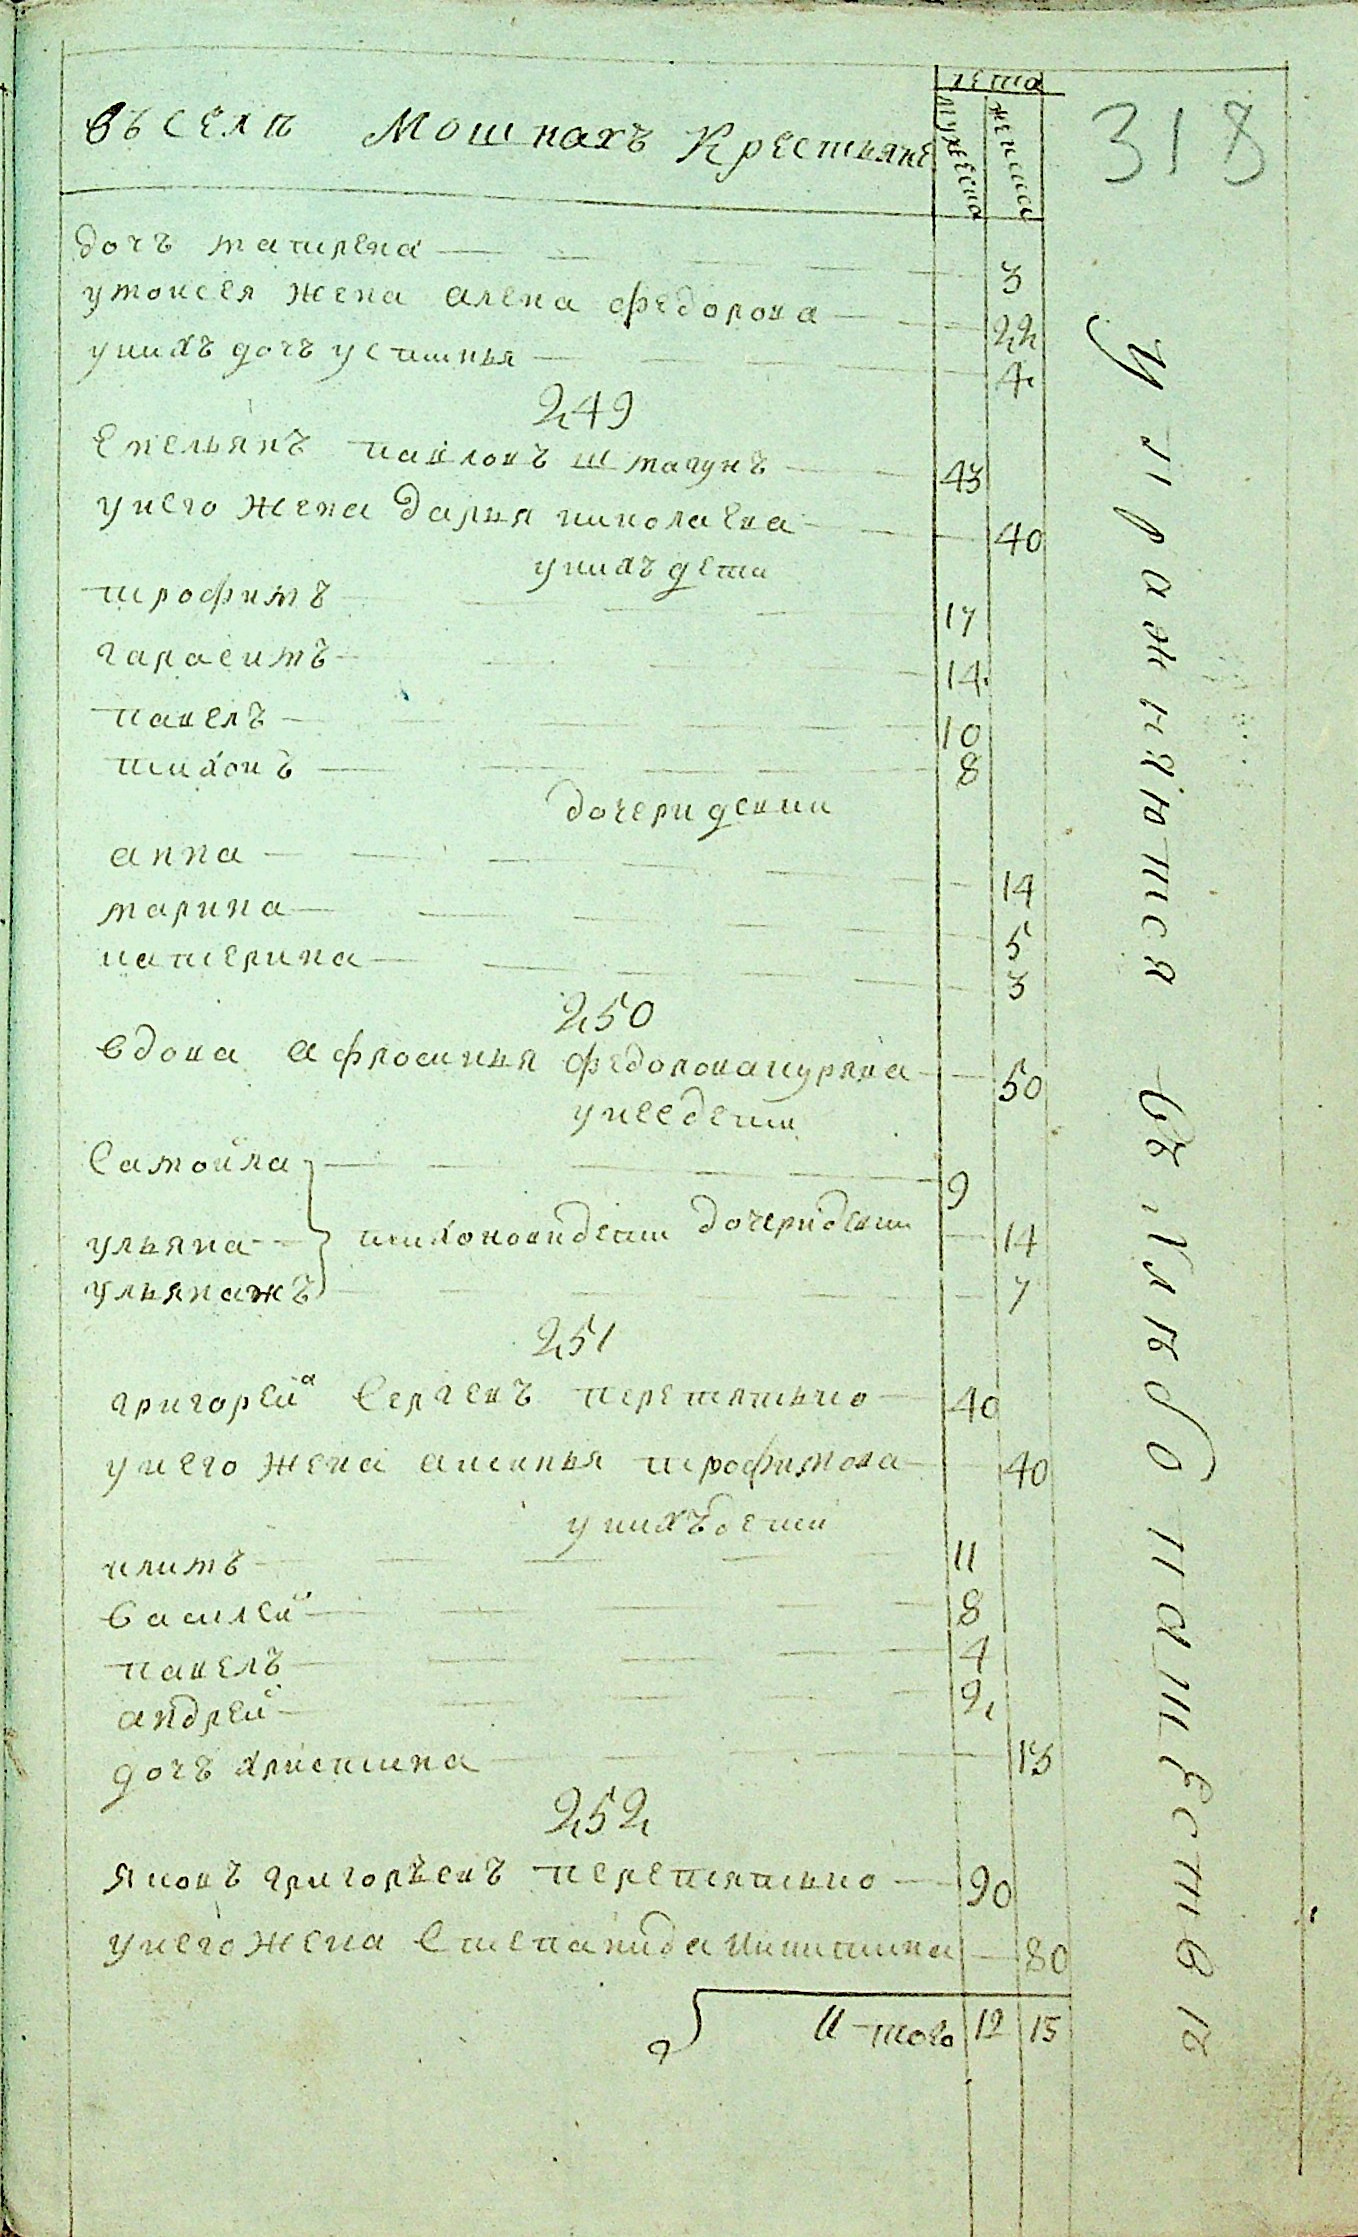 лета
мужеска
женска
318
въ селѣ Мошнахъ Крестьяне
дочь матрена 3
у моисея жена алена федорова 22
у нихъ дочь устинья 4
249
Емельянъ павловъ шмагунъ 43
у него жена дарья николаева 40
у нихъ дети
трофимъ 17
гарасимъ 14
павелъ 10
тихонъ 8
дочери девки
анна 14
марина 5
катерина 3
250
вдова афросинья федорова 50
у нее дети
Самойла 9
ульяна тихоновидети дочери девки 14
ульянажъ 7
251
григорей Сергеевъ перетятько 40
у него жена аксинья трофимова 40
у нихъ дети
климъ 11
василей 8
павелъ 4
андрей 2
дочь христина 13
252
яковъ григорьевъ перетятько 90
у него жена Степанида Никитина 80
Итого 12 15
Упражняются въ хлѣбопашествѣ